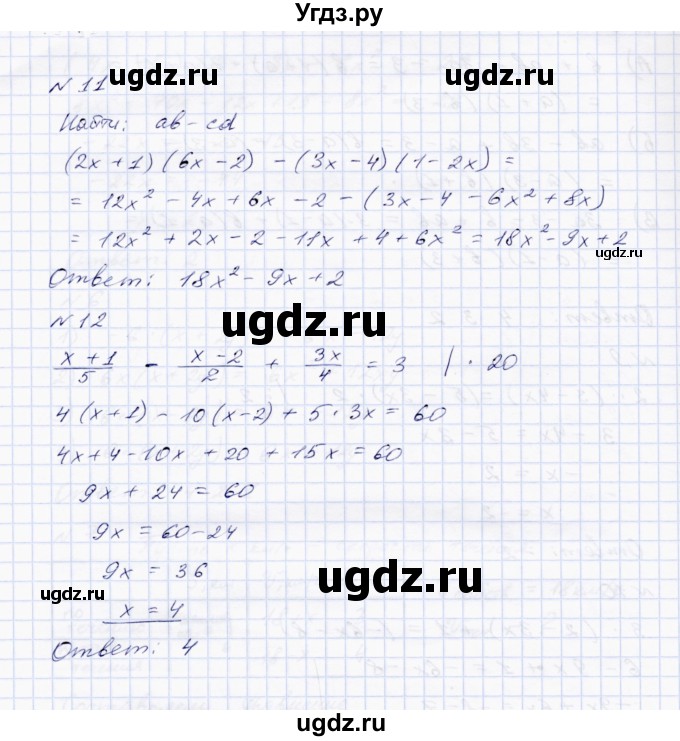 Угдз.ру
N 11
ugdz.ru ugdz.ru
Найти: ab - cd
(2x + 1)(6x - 2) - (3x - 4)(1 - 2x) =
= 12x² - 4x + 6x - 2 - (3x - 4 - 6x² + 8x)
= 12x² + 2x - 2 - 11x + 4 + 6x² = 18x² - 9x + 2
ugdz.ru
Ответ: 18x² - 9x + 2
N 12
ugdz.ru
(x + 1)/5 - (x - 2)/2 + 3x/4 = 3 | · 20
4(x + 1) - 10(x - 2) + 5 · 3x = 60
4x + 4 - 10x + 20 + 15x = 60
9x + 24 = 60
9x = 60 - 24
9x = 36
ugdz.ru
ugdz.ru
x = 4
Ответ: 4
ugdz.ru ugdz.ru
ugdz.ru